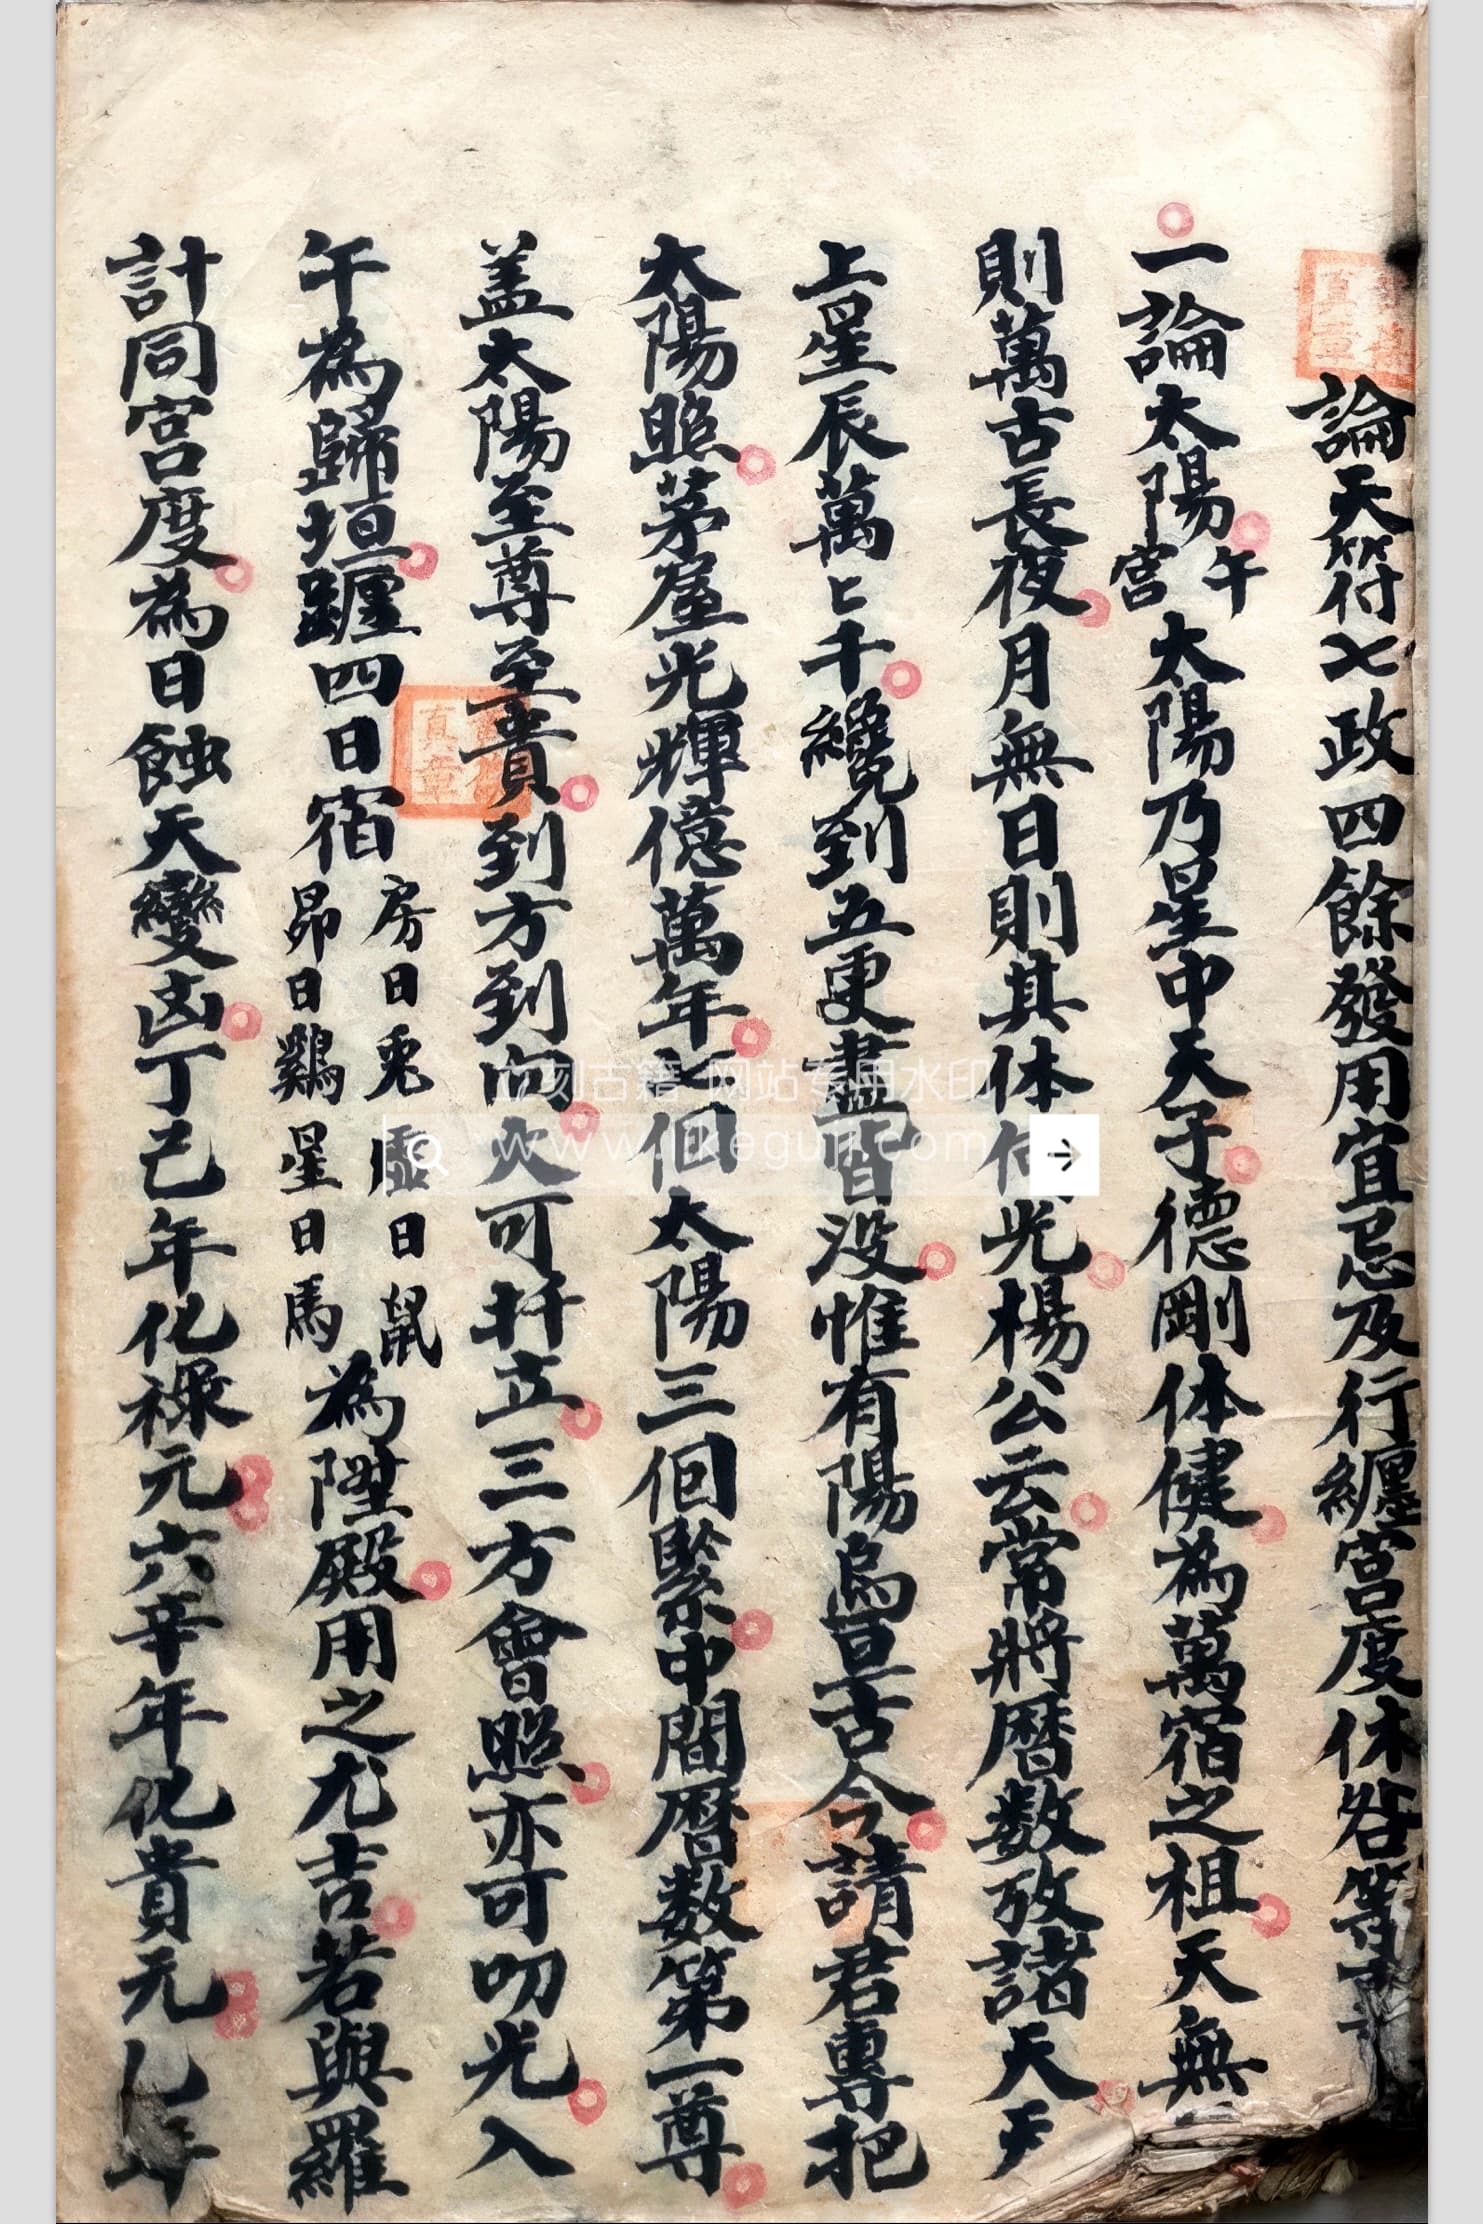 論天符七政四餘發用宜忌及行纏宮度休咎等
一論太陽午宮太陽乃星中天子德剛体健為萬宿之祖天無
則萬古長夜月無日則其体何光楊公云常將曆数攷諸天天
上星辰萬匕千纔到五更盡皆没惟有陽烏亘古今請君專把
太陽照茅屋光輝億萬年七個太陽三個緊中間曆数第一尊
盖太陽至尊至貴到方到向大可扦立三方會照亦可叨光入
午為歸垣躔四日宿房日兎虛日鼠昴日鷄星日馬為陞殿用之尤吉若與羅
計同宮度為日蝕天變凶丁己年化祿元六辛年化貴元乚年
真章
真章
立刻古籍 网站专用水印